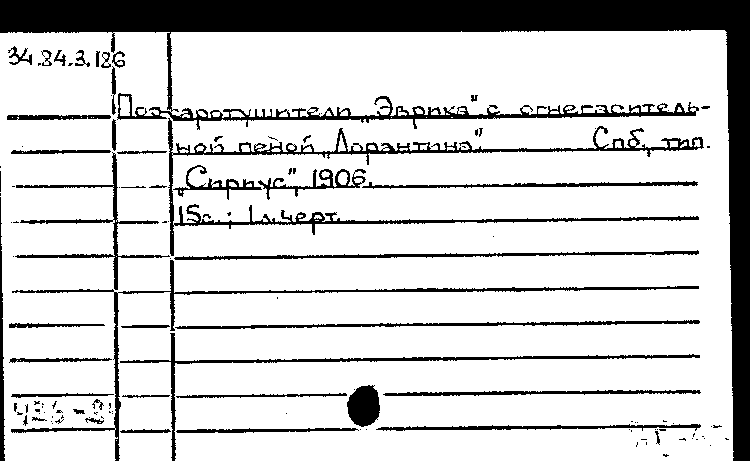 34.84.3.126
Пожаротушители „Эврика" с огнегаситель-
ной пеной „Лорантина". Спб., тип.
„Сириус", 1906.
15с.; 1л.черт.